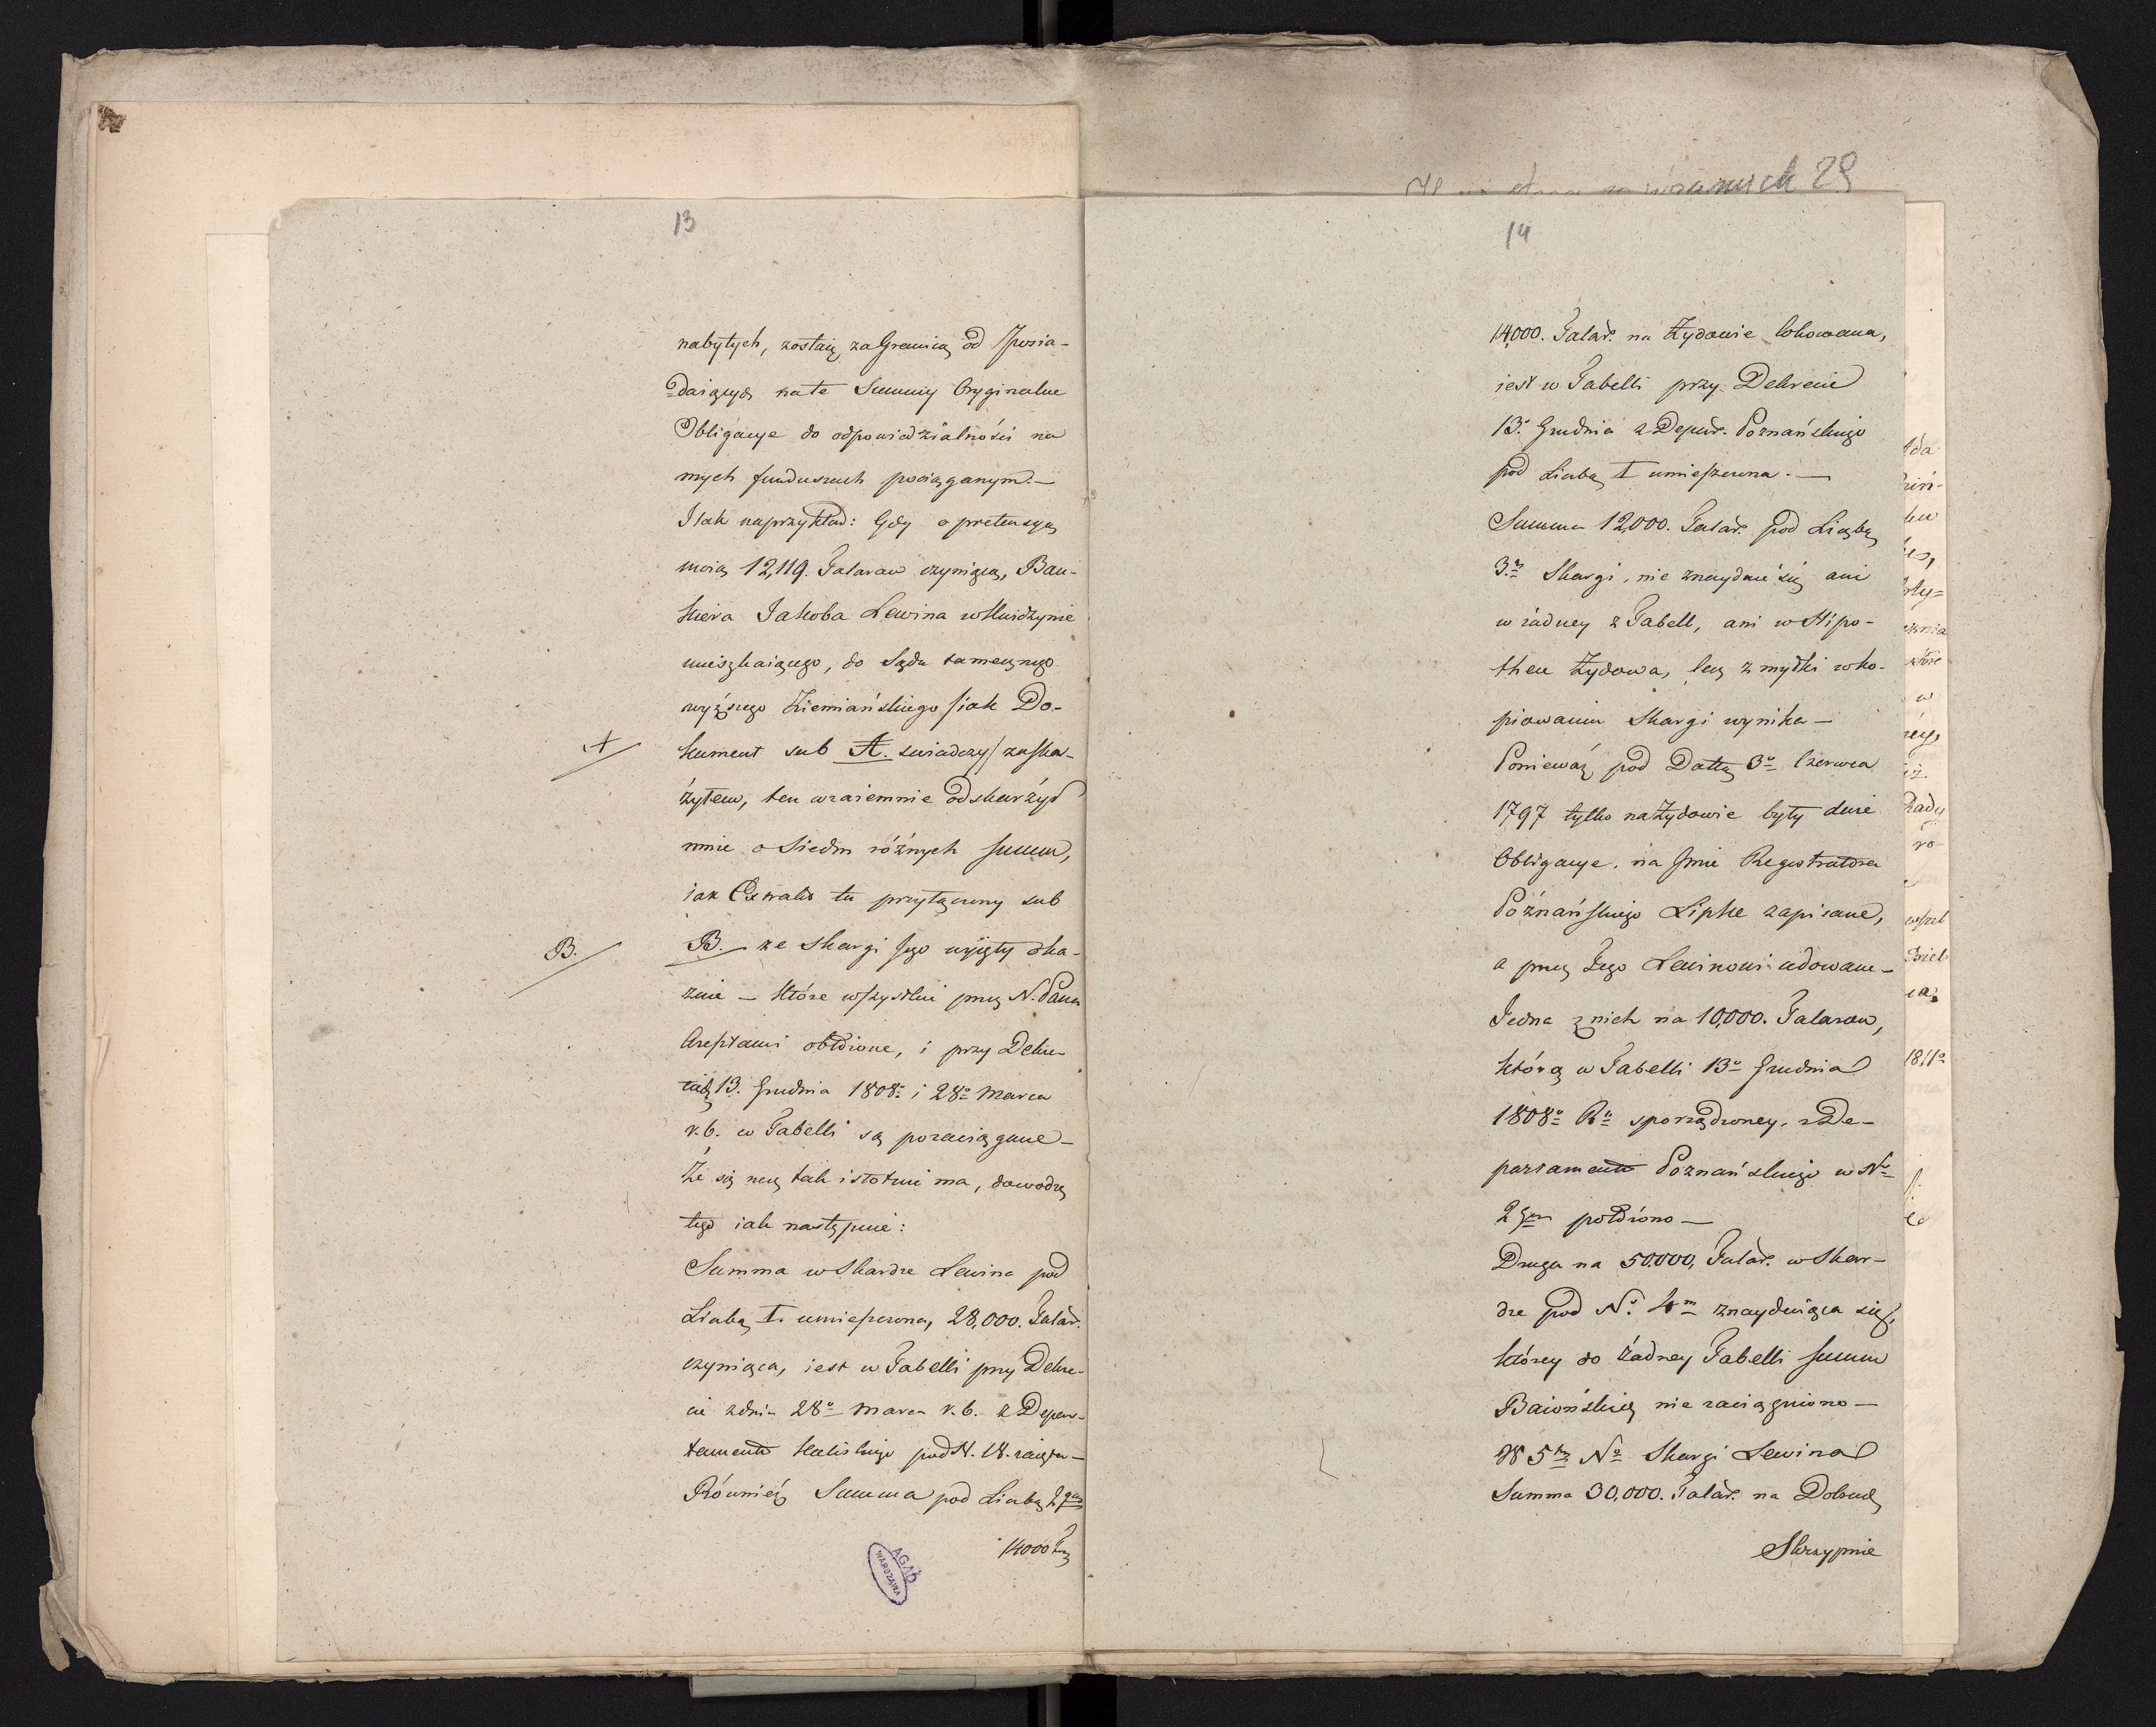 13
nabytych, zostaię za Granicą od Posia-
daiących na te Summy Oryginalne
Obligacye do odpowiedzialności na
mych funduszach pociąganym.—
I tak naprzykład: Gdy o pretensyą
moią 12,119. Talarow czyniącą, Ban-
kiera Jakoba Lewina w Kwidzynie
mieszkaiącego, do Sądu tamecznego
wyższego Ziemiańskiego /iak Do-
A
kument sub A. świadczy/ zaskar-
żyłem, ten wzaiemnie odskarżył
mnie o Siedm różnych Summ,
iak Extrakt tu przyłączony sub
B.
B. ze Skargi Jego wyięty oka-
zuie — które wszystkie przez N. Pana
Aresztami obłożone, i przy Dekre-
tach 13. Grudnia 1808o i 28o Marca
r. b. w Tabelli są pozaciągane —
Że się rzecz tak istotnie ma, dowodzę
tego iak następuie:
Summa w Skardze Lewina pod
Liczbą I. umieszczona, 28,000. Talar.
czyniąca, iest w Tabelli przy Dekre-
cie z dnia 28o Marca r. b. z Depar-
tamentu Kaliskiego pod N. 18. zaięta —
Również Summa pod Liczbą 2gą
14000
AGAD
WARSZAWA
29
14
14,000. Talar. na Żydowie lokowana,
iest w Tabelli przy Dekrecie
13o Grudnia z Depart. Poznańskiego
pod Liczbą I umieszczona.—
Summa 12,000. Talar. pod Liczbą
3. Skargi, nie znayduie się ani
w żadney z Tabell, ani w Hipo-
thece Żydowa, lecz z myłki w ko-
piowaniu Skargi wynika —
Ponieważ pod Dattą 3o Czerwca
1797 tylko na Żydowie były dwie
Obligacye na Imie Registratora
Poznańskiego Lipke zapisane,
a przez Tego Lewinowi cedowane —
Jedna z nich na 10,000. Talarow,
którą w Tabelli 13o Grudnia
1808o Ro sporządzoney, z De-
partamentu Poznańskiego w No
2gim położono —
Druga na 50,000, Talar. w Skar-
dze pod No 4m znayduiąca się,
którey do żadney Tabelli Summ
Baiońskich nie zaciągniono —
W 5tym No Skargi Lewina
Summa 30,000. Talar. na Dobrach
Skrzypnie